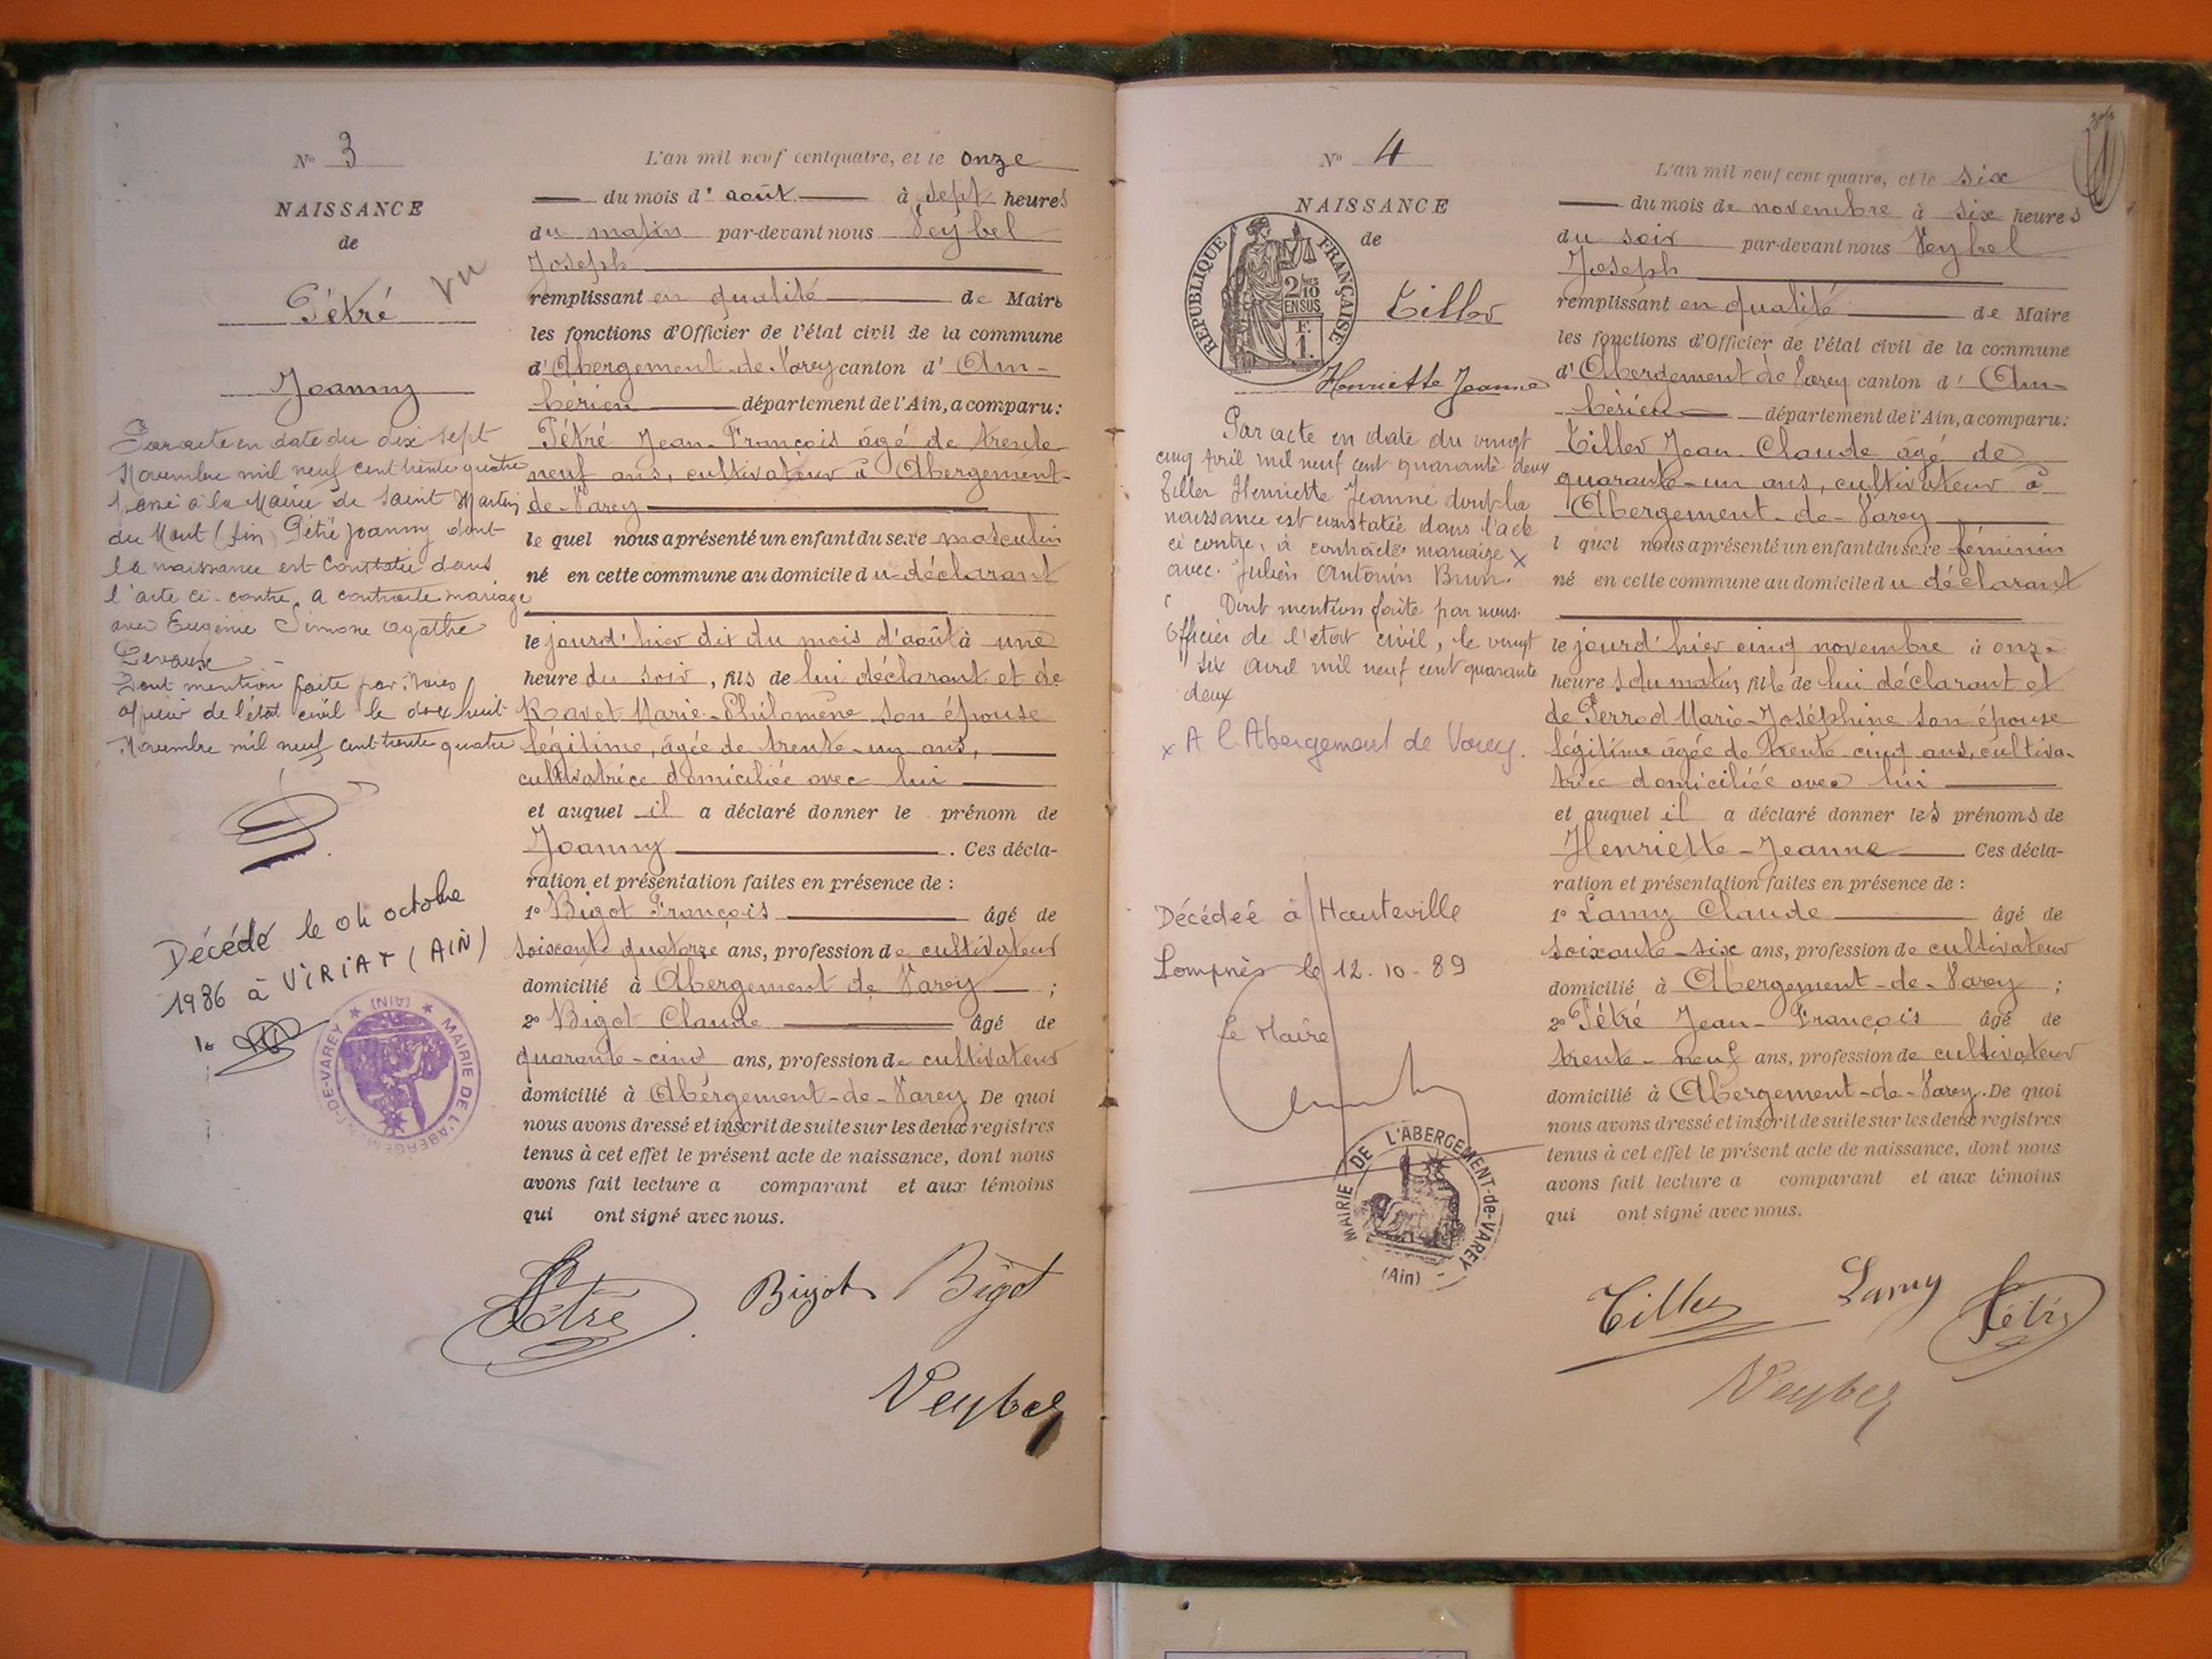 N° 3
NAISSANCE
de
Pétré
vu
Joanny
Par acte en date du dix sept
Novembre mil neuf cent trente quatre
passé à la Mairie de Saint Martin
du Mont (Ain) Pétré Joanny dont
la naissance est constatée dans
l'acte ci-contre, a contracté mariage
avec Eugénie Simone Agathe
Dont mention faite par Nous
officier de l'état civil le dix huit
Novembre mil neuf cent trente quatre
Décédé le 04 octobre
1986 à VIRIAT (AIN)
MAIRIE DE L'ABERGEMENT-DE-VAREY (AIN)
L'an mil neuf cent quatre, et le onze
du mois d' août à sept heures
du matin par-devant nous Veybel
Joseph
remplissant en qualité de Maire
les fonctions d'Officier de l'état civil de la commune
d'Abergement-de-Varey canton d' Am-
bérieu département de l'Ain, a comparu:
Pétré Jean-François âgé de trente
neuf ans, cultivateur à Abergement-
de-Varey
le quel nous a présenté un enfant du sexe masculin
né en cette commune au domicile du déclarant
le jourd'hier dix du mois d'août à une
heure du soir, fils de lui déclarant et de
Ravet Marie-Philomène son épouse
légitime, âgée de trente-un ans,
cultivatrice domiciliée avec lui
et auquel il a déclaré donner le prénom de
Joanny. Ces décla-
ration et présentation faites en présence de :
1° Bigot François âgé de
soixante quatorze ans, profession de cultivateur
domicilié à Abergement de Varey ;
2° Bigot Claude âgé de
quarante-cinq ans, profession de cultivateur
domicilié à Abergement-de-Varey. De quoi
nous avons dressé et inscrit de suite sur les deux registres
tenus à cet effet le présent acte de naissance, dont nous
avons fait lecture a comparant et aux témoins
qui ont signé avec nous.
Pétré Bigot Bigot
Veybel
N° 4
NAISSANCE
de
REPUBLIQUE FRANÇAISE
2/10
EN SUS
F.
1.
Tiller
Henriette Jeanne
Par acte en date du vingt
cinq Avril mil neuf cent quarante deux
Tiller Henriette Jeanne dont la
naissance est constatée dans l'acte
ci contre, à contracté mariage x
avec Julien Antonin Brun.
Dont mention faite par nous
Officier de l'état civil, le vingt
six avril mil neuf cent quarante
deux
x A l'Abergement de Varey.
Décédée à Hauteville
Lompnès le 12.10.89
Le Maire
MAIRIE DE L'ABERGEMENT-de-VAREY
(Ain)
L'an mil neuf cent quatre, et le six
du mois de novembre à six heures
du soir par-devant nous Veybel
Joseph
remplissant en qualité de Maire
les fonctions d'Officier de l'état civil de la commune
d'Abergement de Varey canton d' Am-
bérieu département de l'Ain, a comparu:
Tiller Jean-Claude âgé de
quarante-un ans, cultivateur à
Abergement-de-Varey
l quel nous a présenté un enfant du sexe féminin
né en cette commune au domicile du déclarant
le jourd'hier cinq novembre à onze
heures du matin, fille de lui déclarant et
de Perrod Marie-Joséphine son épouse
légitime âgée de trente-cinq ans, cultiva-
trice domiciliée avec lui
et auquel il a déclaré donner les prénoms de
Henriette-Jeanne Ces décla-
ration et présentation faites en présence de :
1° Lamy Claude âgé de
soixante-six ans, profession de cultivateur
domicilié à Abergement-de-Varey ;
2° Pétré Jean-François âgé de
trente-neuf ans, profession de cultivateur
domicilié à Abergement-de-Varey. De quoi
nous avons dressé et inscrit de suite sur les deux registres
tenus à cet effet le présent acte de naissance, dont nous
avons fait lecture a comparant et aux témoins
qui ont signé avec nous.
Tiller Lamy Pétré
Veybel